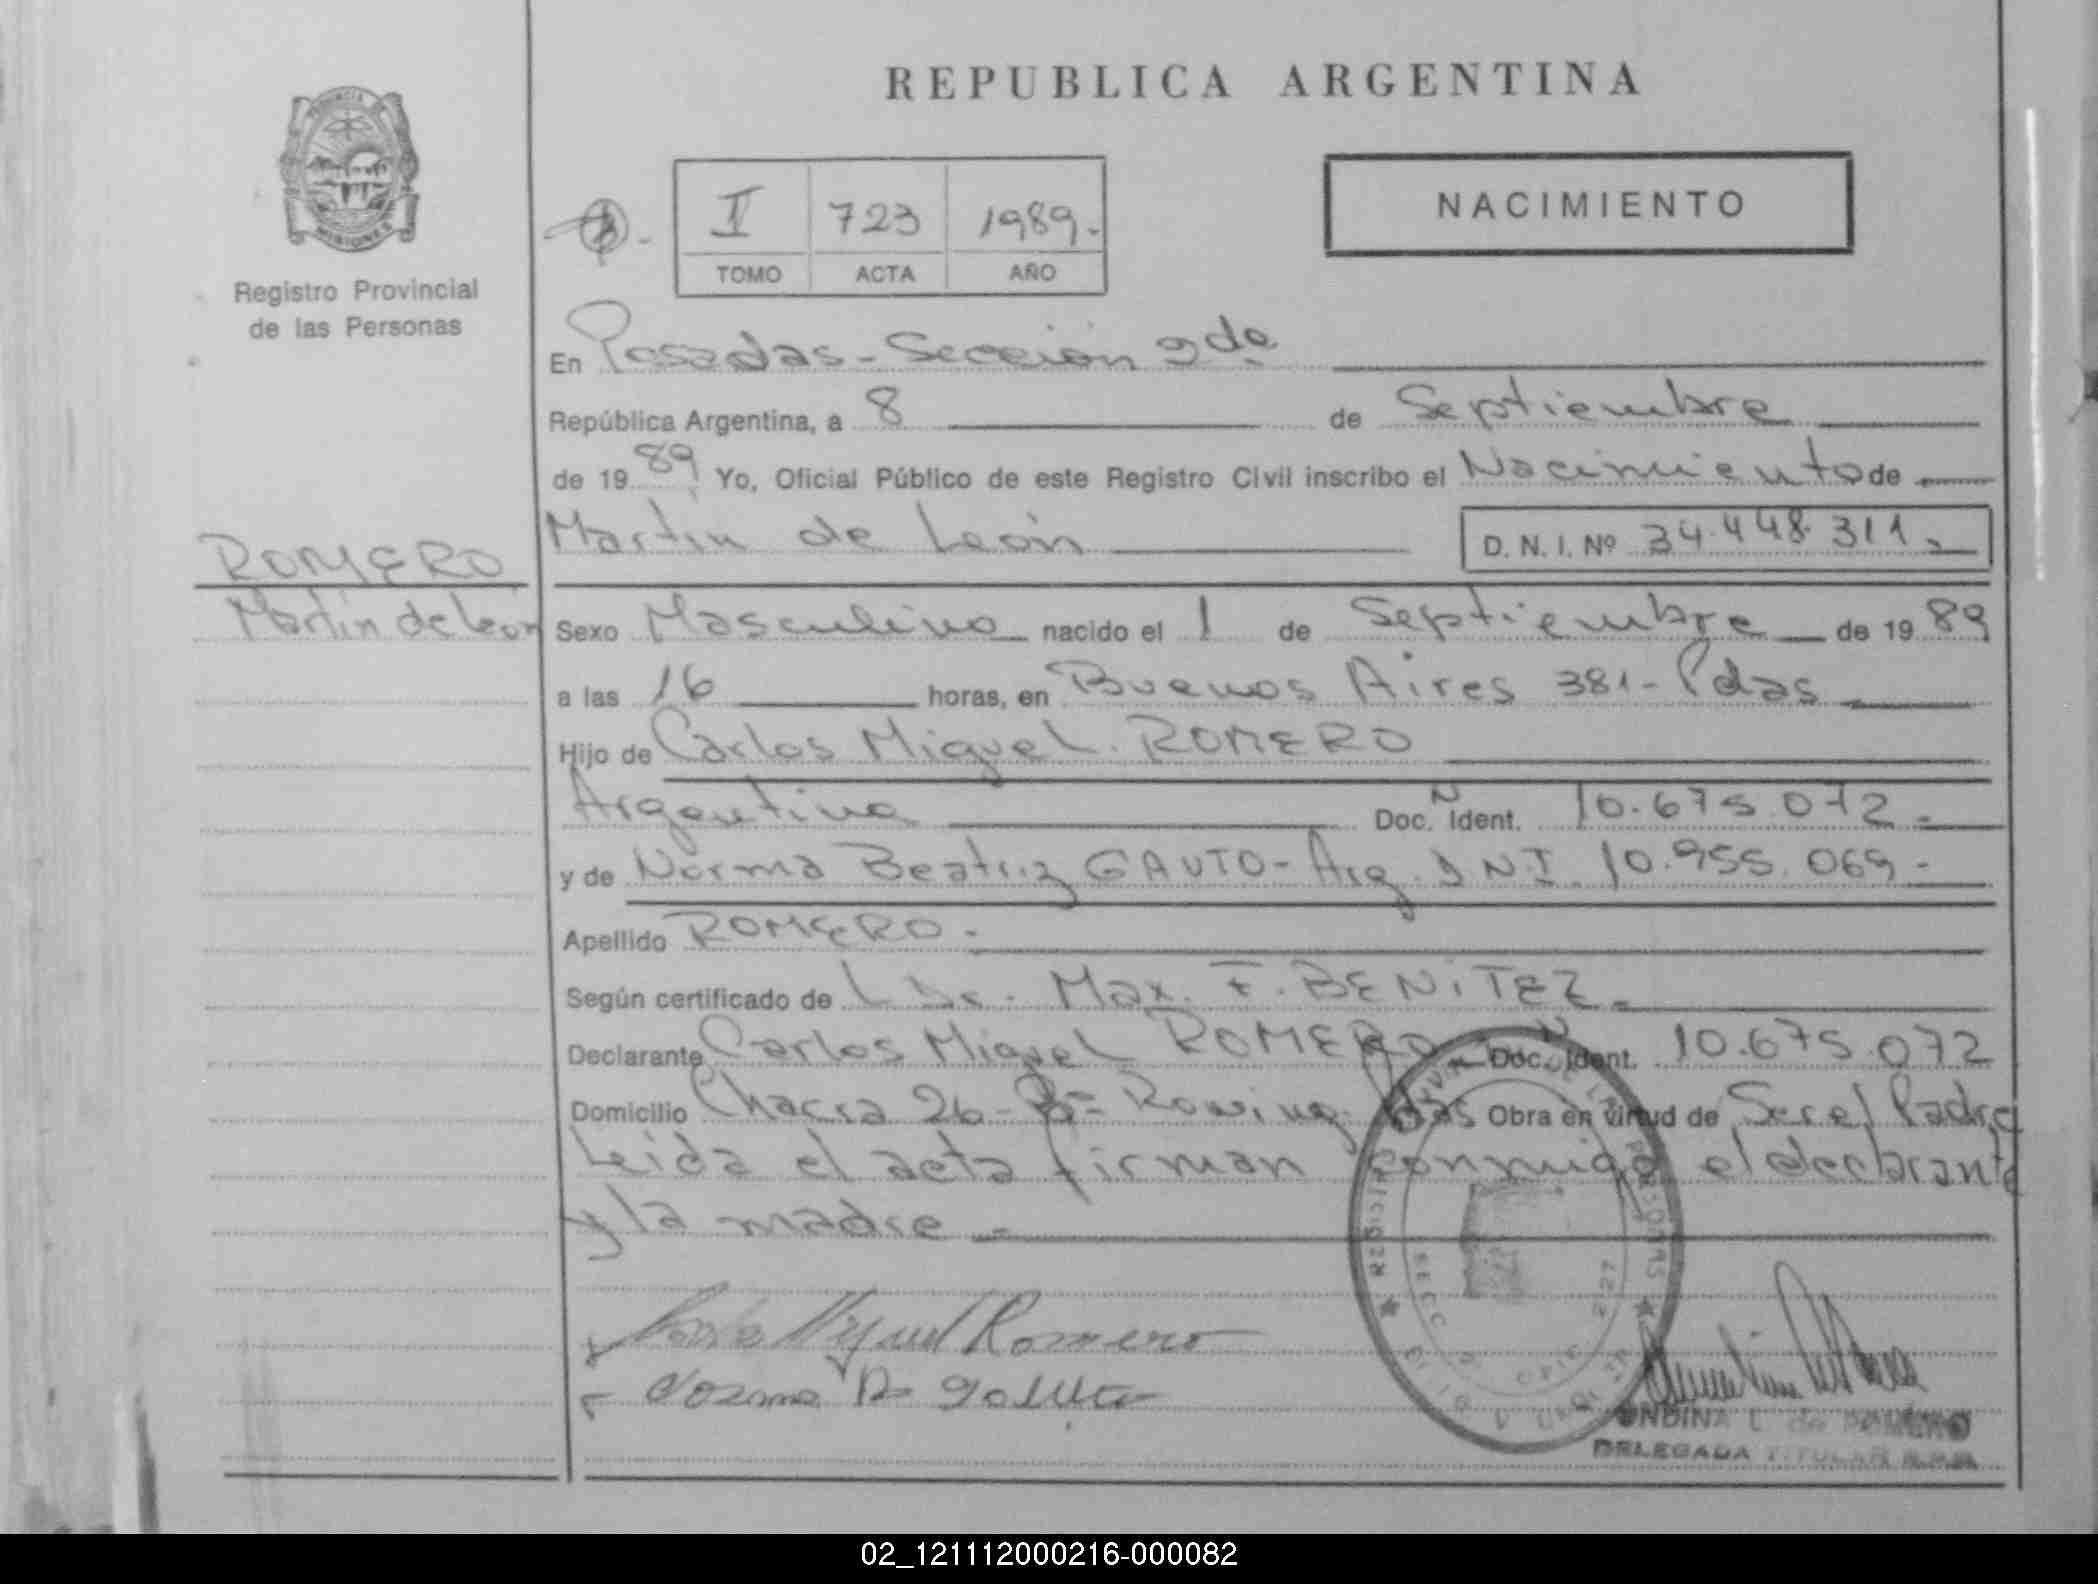 REPUBLICA ARGENTINA
PROVINCIA
MISIONES
Registro Provincial
de las Personas
I 723 1989.-
TOMO ACTA AÑO
NACIMIENTO
En Posadas - Sección 2da
República Argentina, a 8 de Septiembre
de 1989 Yo, Oficial Público de este Registro Civil inscribo el Nacimiento de
ROMERO
Martín de León
Martín de León D. N. I. Nº 34.448.311.-
Sexo Masculino nacido el 1 de Septiembre de 1989
a las 16 horas, en Buenos Aires 381 - Pdas
Hijo de Carlos Miguel ROMERO
Argentino Doc. N Ident. 10.675.072.-
y de Norma Beatriz GAUTO - Arg. DNI. 10.955.069 -
Apellido ROMERO.-
Según certificado de Dr. Max. F. BENiTEZ.-
Declarante Carlos Miguel ROMERO Doc. N Ident. 10.675.072
Domicilio Chacra 26 - Bº Rowing Pdas Obra en virtud de Ser el Padre
Leida el acta firman conmigo el declarante
y la madre -
Miguel Romero
Norma B Gauto
REGISTRO PROVINCIAL DE LAS PERSONAS
ONDINA L de ROMERO
DELEGADA TITULAR
02_121112000216-000082